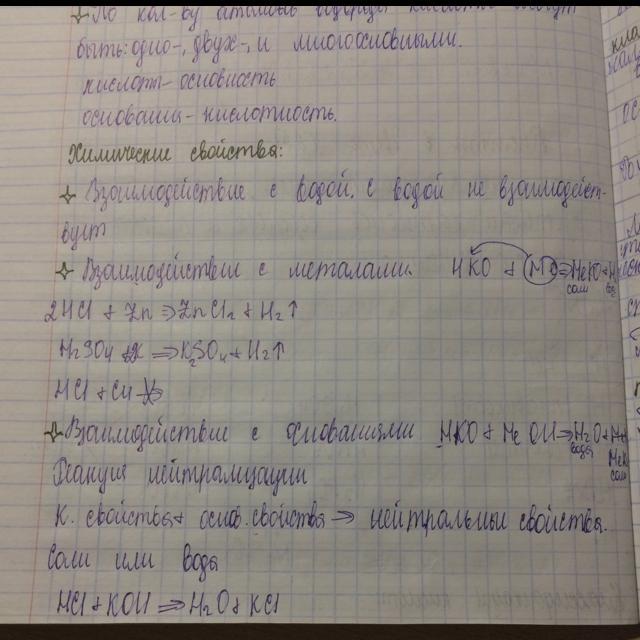 ✧ По кол-ву атомов водорода кислоты могут
быть: одно-, двух-, и многоосновными.
кислот- основность
основания- кислотность.
Химические свойства:
✧ Взаимодействие с водой. с водой не взаимодейст-
вует
✧ Взаимодействие с металами. HKO + Me ⇒ MeKO + H₂
соли
2HCl + Zn ⇒ ZnCl₂ + H₂↑
H₂SO₄ + K ⇒ K₂SO₄ + H₂↑
HCl + Cu ⇏
✧ Взаимодействие с основаниями HKO + MeOH ⇒ H₂O +
вода
MeKO
соли
Реакция нейтрализации
К. свойства + основ. свойства ⇒ нейтральные свойства.
Соли или вода
HCl + KOH ⇒ H₂O + KCl